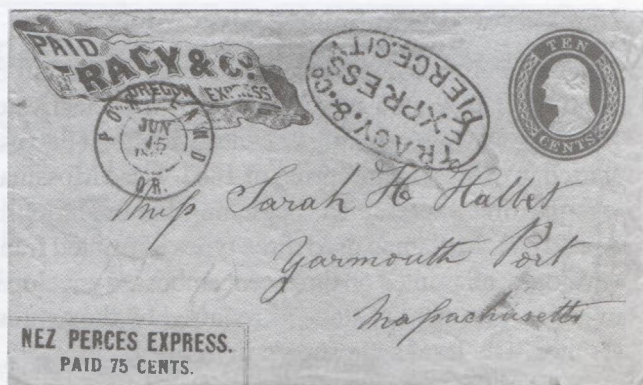 PAID
TRACY & Co.
OREGON EXPRESS
TRACY & Co.
EXPRESS
PIERCE CITY
TEN
CENTS
PORTLAND
JUN
15
OR.
Miss Sarah H Hallet
Yarmouth Port
Massachusetts
NEZ PERCES EXPRESS.
PAID 75 CENTS.